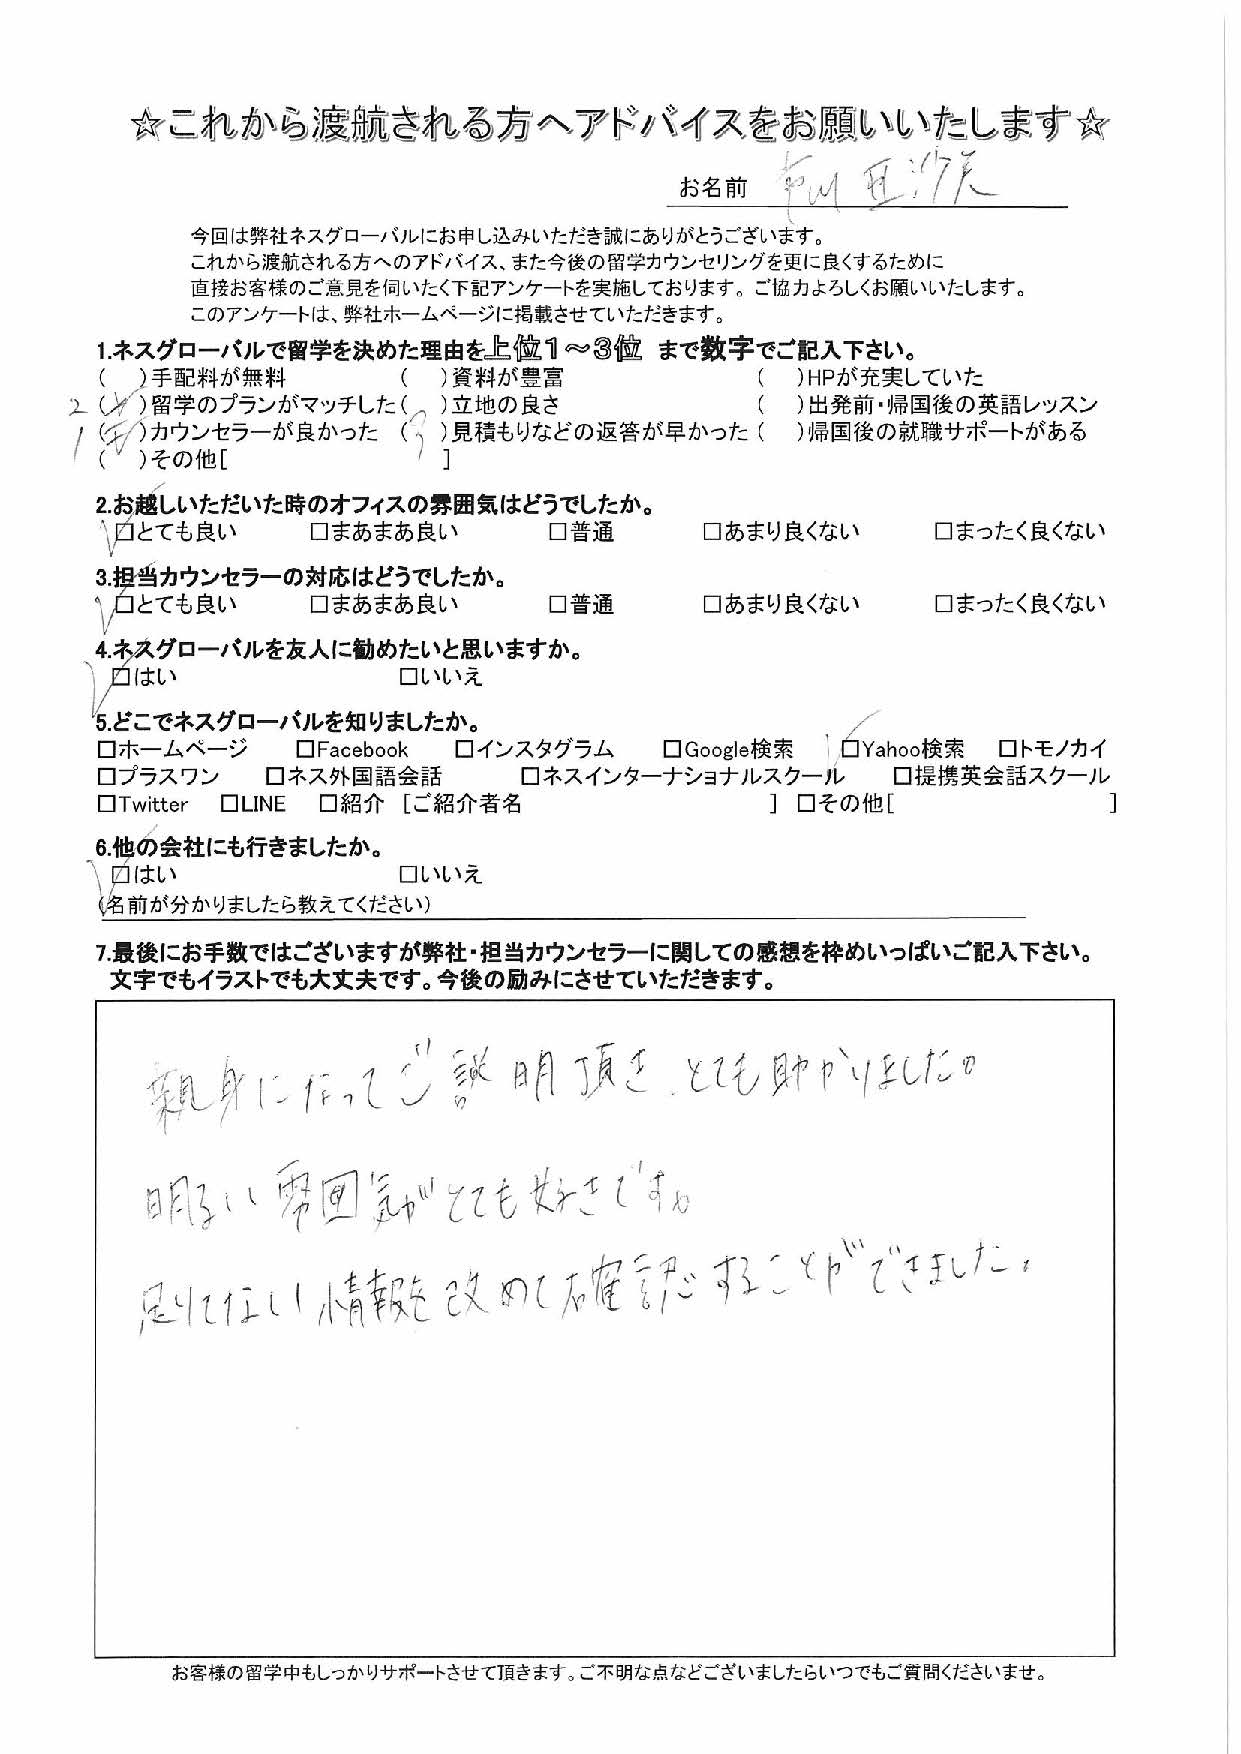 ☆これから渡航される方へアドバイスをお願いいたします☆
お名前 亜沙美
今回は弊社ネスグローバルにお申し込みいただき誠にありがとうございます。
これから渡航される方へのアドバイス、また今後の留学カウンセリングを更に良くするために
直接お客様のご意見を伺いたく下記アンケートを実施しております。ご協力よろしくお願いいたします。
このアンケートは、弊社ホームページに掲載させていただきます。
1.ネスグローバルで留学を決めた理由を上位1～3位 まで数字でご記入下さい。
( )手配料が無料 ( )資料が豊富 ( )HPが充実していた
2 ( )留学のプランがマッチした ( )立地の良さ ( )出発前・帰国後の英語レッスン
1 ( )カウンセラーが良かった (3)見積もりなどの返答が早かった ( )帰国後の就職サポートがある
( )その他[ ]
2.お越しいただいた時のオフィスの雰囲気はどうでしたか。
☑とても良い □まあまあ良い □普通 □あまり良くない □まったく良くない
3.担当カウンセラーの対応はどうでしたか。
☑とても良い □まあまあ良い □普通 □あまり良くない □まったく良くない
4.ネスグローバルを友人に勧めたいと思いますか。
☑はい □いいえ
5.どこでネスグローバルを知りましたか。
□ホームページ □Facebook □インスタグラム □Google検索 ☑Yahoo検索 □トモノカイ
□プラスワン □ネス外国語会話 □ネスインターナショナルスクール □提携英会話スクール
□Twitter □LINE □紹介 [ご紹介者名 ] □その他[ ]
6.他の会社にも行きましたか。
☑はい □いいえ
(名前が分かりましたら教えてください)
7.最後にお手数ではございますが弊社・担当カウンセラーに関しての感想を枠めいっぱいご記入下さい。
文字でもイラストでも大丈夫です。今後の励みにさせていただきます。
親身になってご説明頂き、とても助かりました。
明るい雰囲気がとても好きです。
足りてない情報を改めて確認することができました。
お客様の留学中もしっかりサポートさせて頂きます。ご不明な点などございましたらいつでもご質問くださいませ。